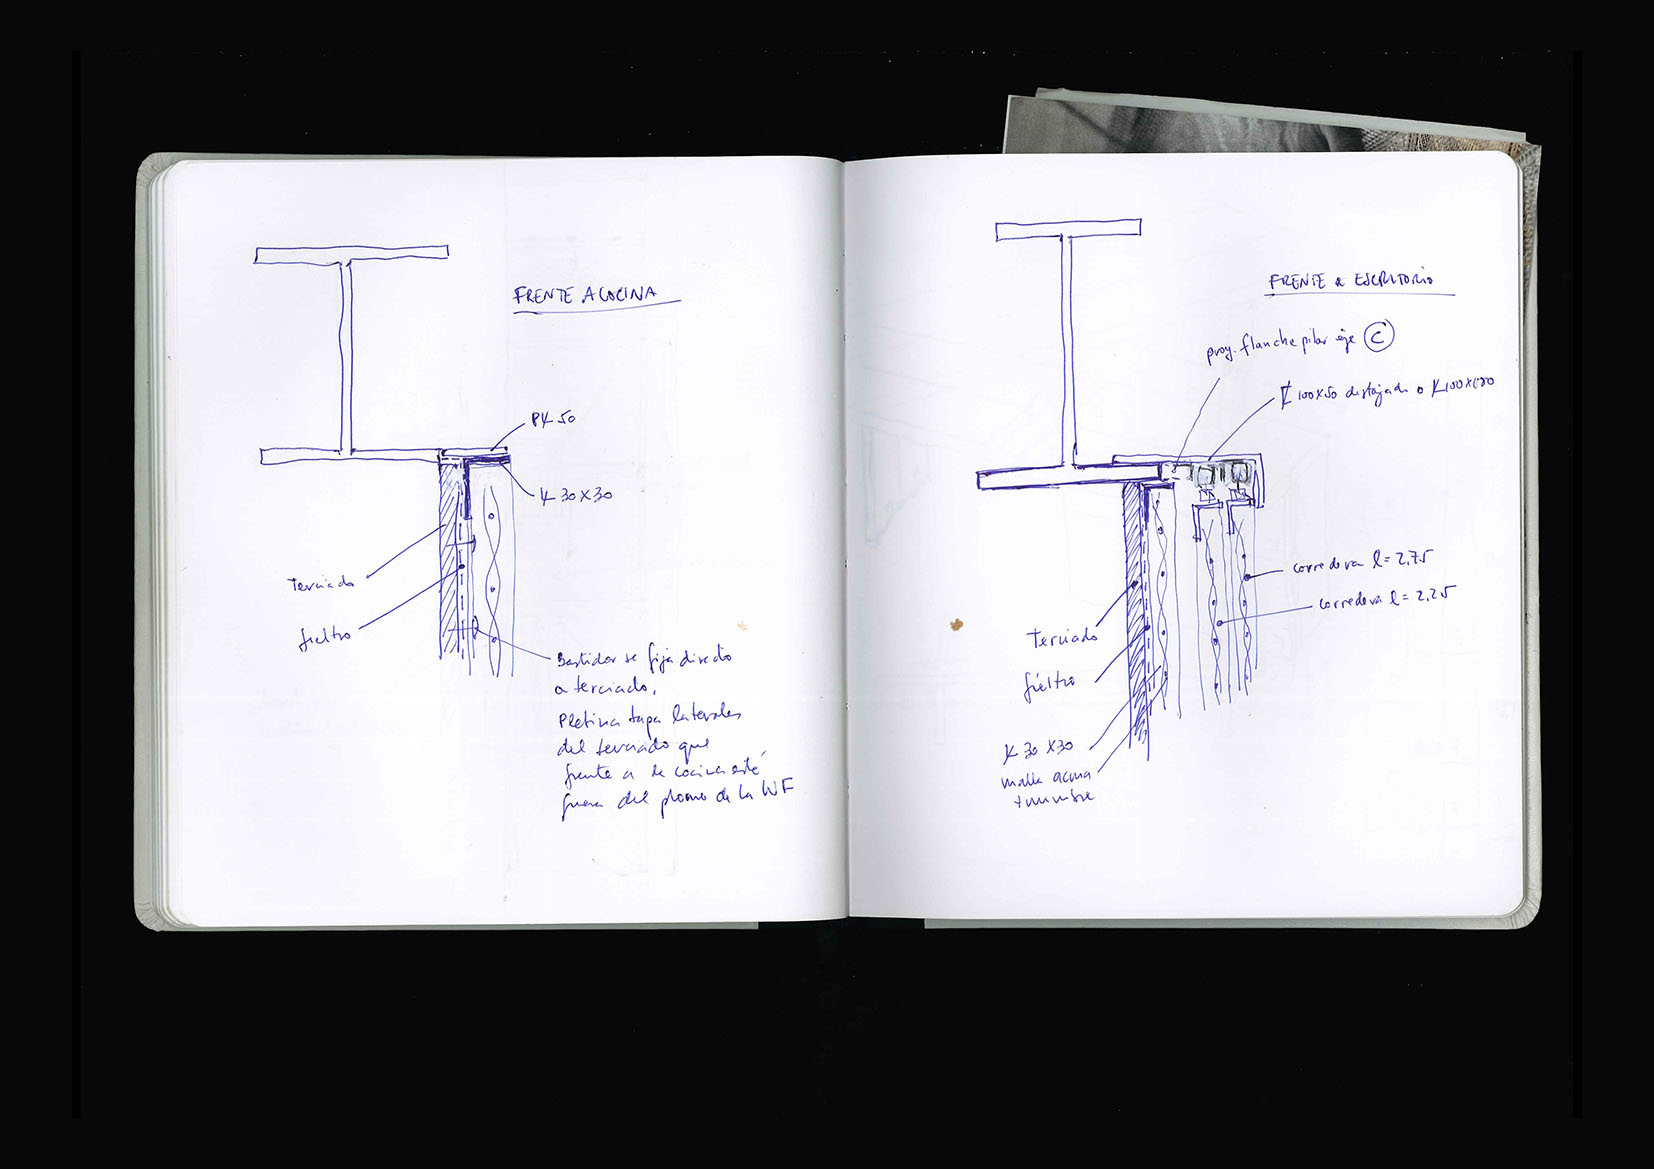 FRENTE A COCINA
PL 50
L 30X30
Terciado
fieltro
Bastidor se fija directo
a terciado.
Pletina tapa laterales
del terciado que
frente a la cocina esté
fuera del plomo de la WF
FRENTE a ESCRITORIO
proy. flanche pilar eje C
100X50 destajado o L100X100
corredera l = 2,75
corredera l = 2,25
Terciado
fieltro
L 30 X30
malla acma
+ mimbre